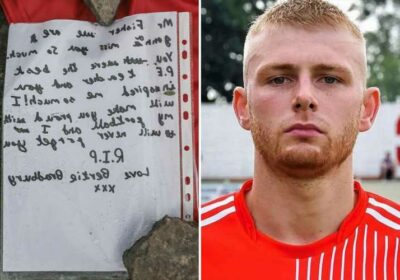 Mr Fisher we are all
gonna miss you so much.
You were the best
P.E teacher and you
inspired me so much! I
will make you proud with
my football and I
will never forget you
R.I.P
Love Bertie Bradbury
xxx